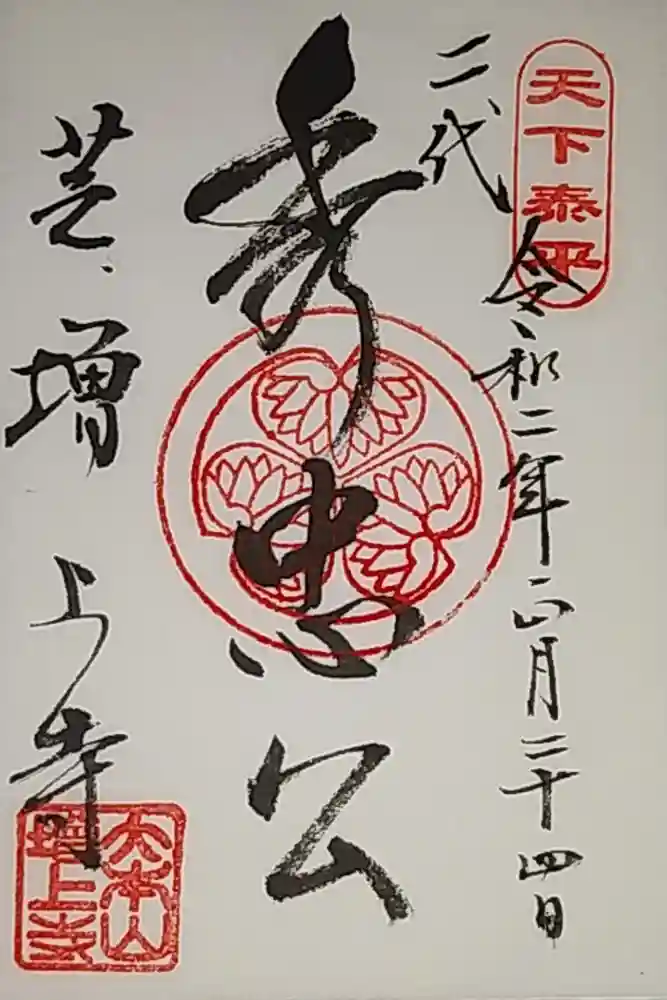 天下泰平
二代
令和二年正月二十四日
秀忠公
芝、増上寺
大本山
増上寺